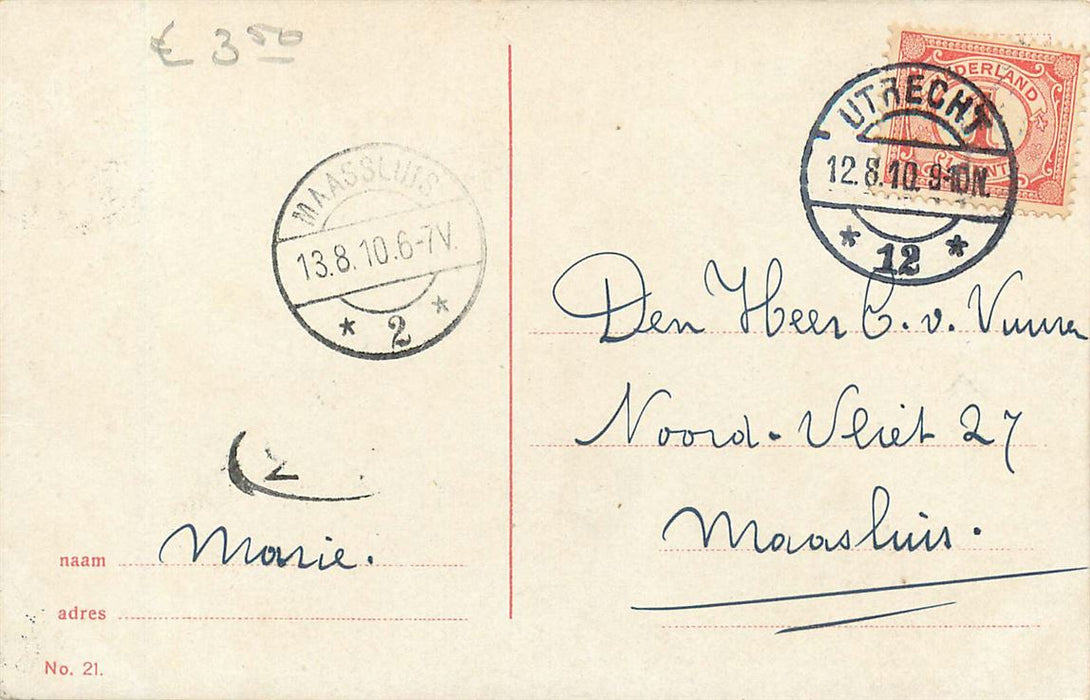 £ 3 50
MAASSLUIS
13.8.10.6-7V.
* 2 *
2
naam Marie.
adres
No. 21.
NEDERLAND
1
CENT
UTRECHT
12.8.10. 9-10N.
* 12 *
Den Heer C. v. Vuuren
Noord-Vliet 27
Maasluis.